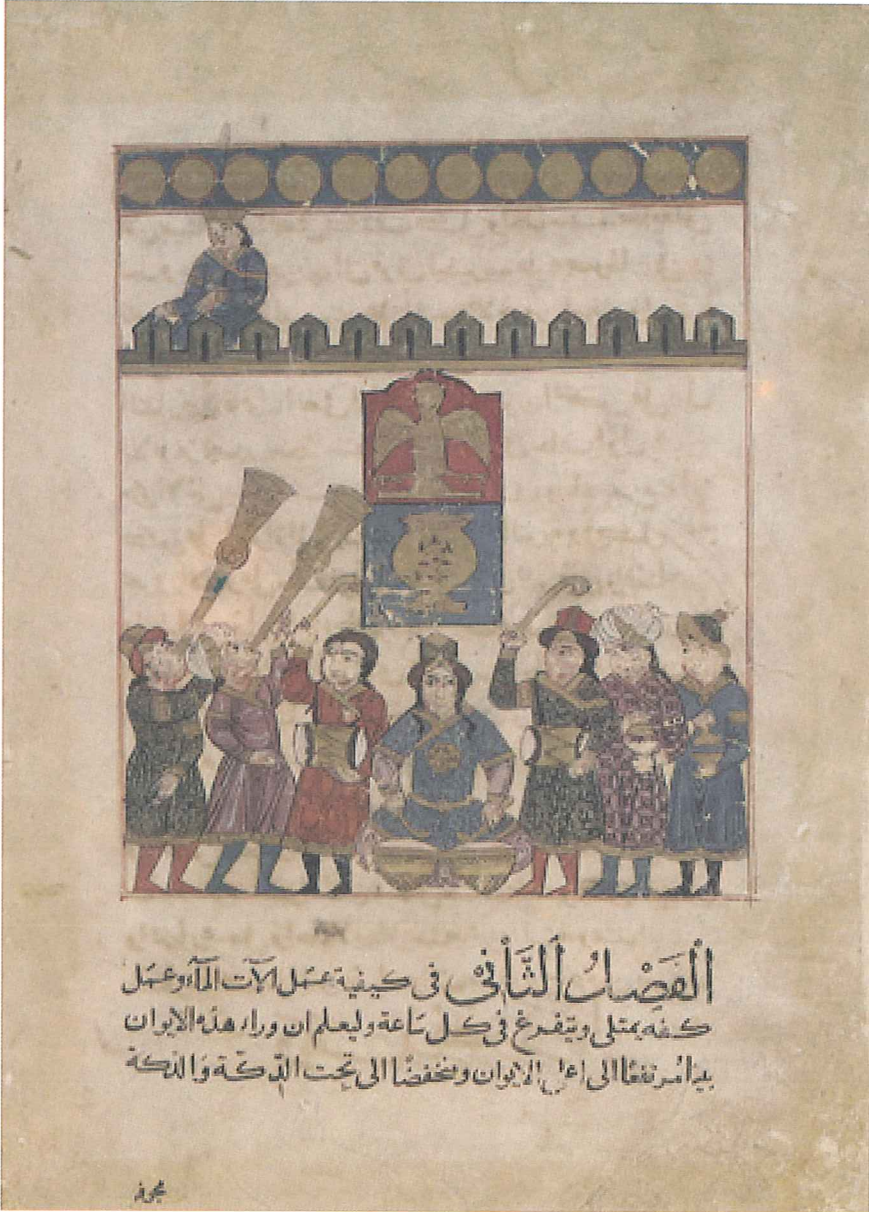 الْفَصْلُ الثَّانِي في كيفية عمل الآت المآء وعمل
كفه يمتلى ويتفرغ في كل ساعة وليعلم ان وراء هذه الايوان
بيتا مرتفعًا الى اعلى الايوان ومنخفضًا الى تحت الدكة والدكة
مجوفة